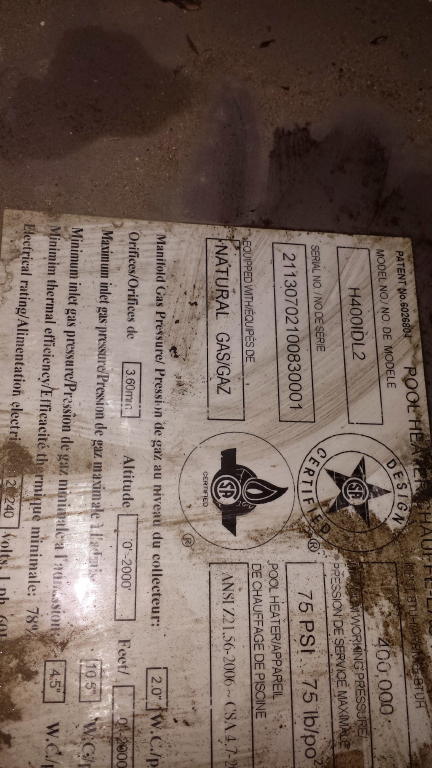 PATENT No.6026804
POOL HEATER
MODEL NO./NO. DE MODELE
H400IDL2
400,000
SERIAL NO. / NO DE SÉRIE
21130702100830001
WORKING PRESSURE/
PRESSION DE SERVICE
75 PSI 75 lb/po²
EQUIPPED WITH/EQUIPÉS DE
NATURAL GAS/GAZ
DESIGN
CERTIFIED
SA
®
CERTIFIED
SA
®
POOL HEATER/APPAREIL
DE CHAUFFAGE DE PISCINE
ANSI Z21.56-2006 ~ CSA 4.7-2
Manifold Gas Pressure/ Pression de gaz au niveau du collecteur: 2.0" W.C./p
Orifices/Orifices de 3.60mm Altitude 0'-2000' Feet/ 0'-2000
Maximum inlet gas pressure/Pression de gaz maximale à 10.5" W.C/
Minimum inlet gas pressure/Pression de gaz minimale à l'admission: 4.5" W.C./p
Minimim thermal efficiency/Efficacité thermique minimale: 78%
Electrical rating/Alimentation électri 240 Volts, 1 ph